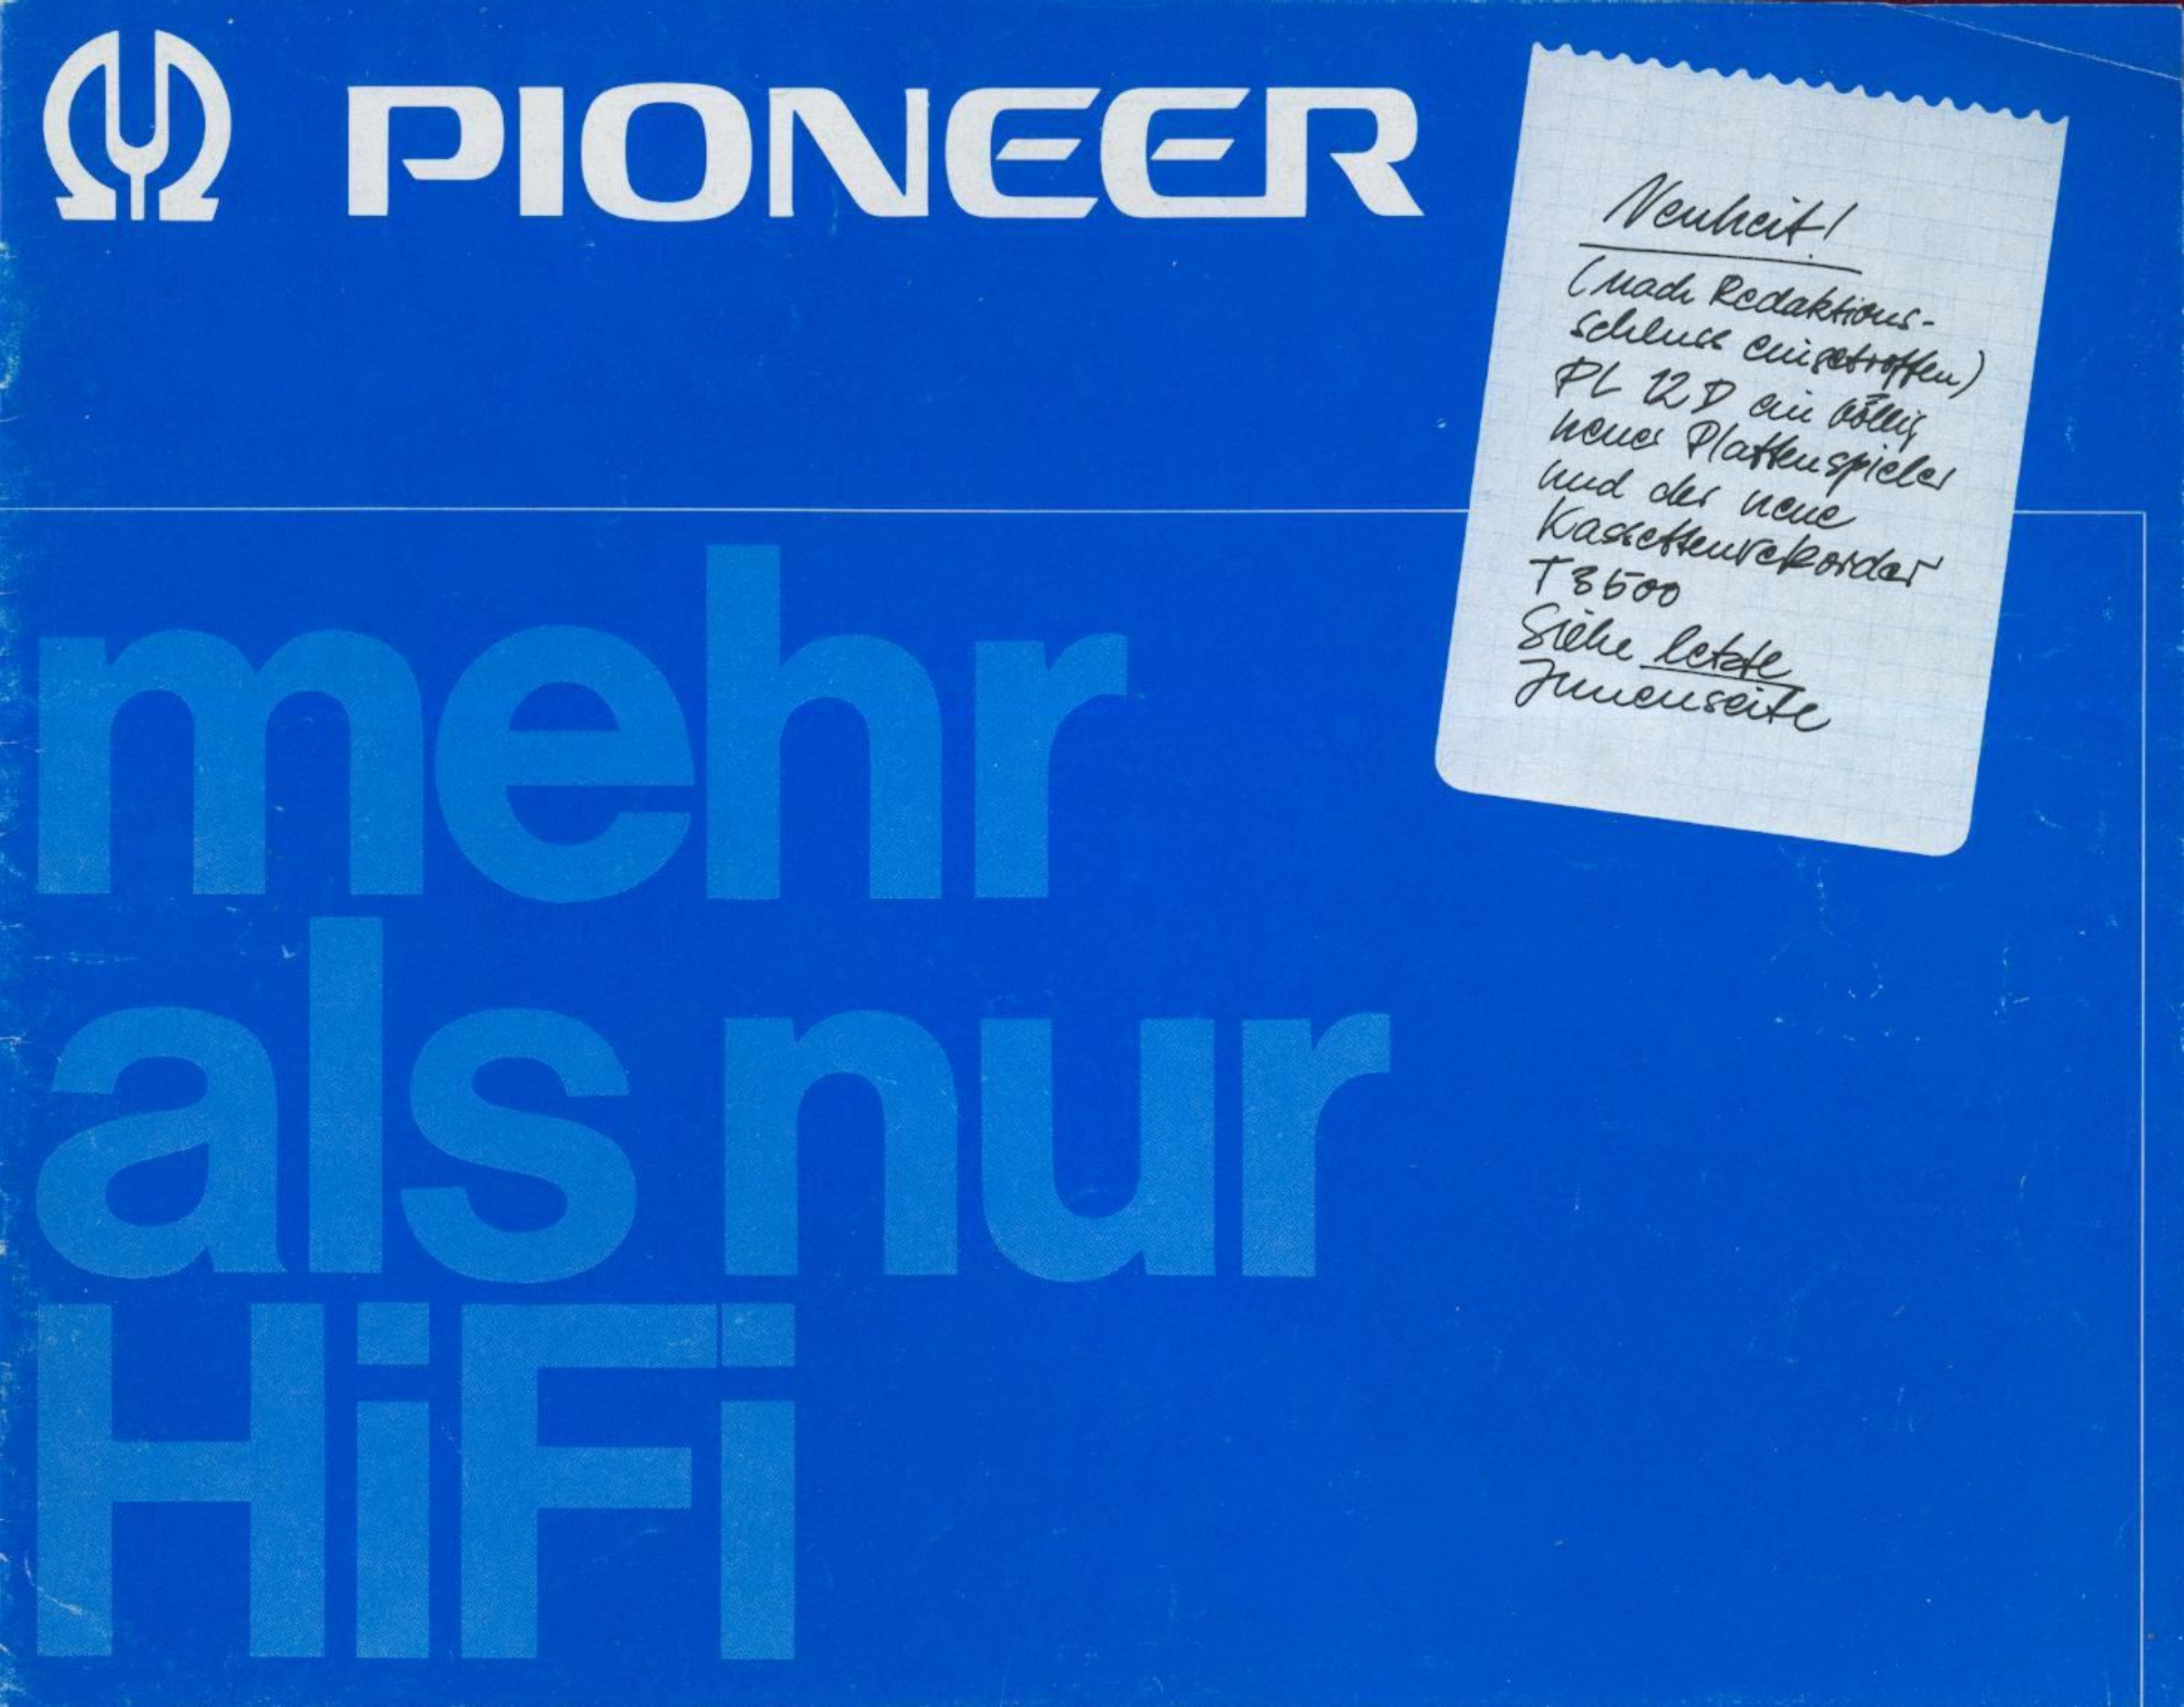 PIONEER
Neuheit!
(nach Redaktions-
schluss eingetroffen)
PL 12 D ein völlig
neuer Plattenspieler
und der neue
Kassettenrekorder
T 3500
Siehe letzte
Innenseite
mehr
als nur
HiFi